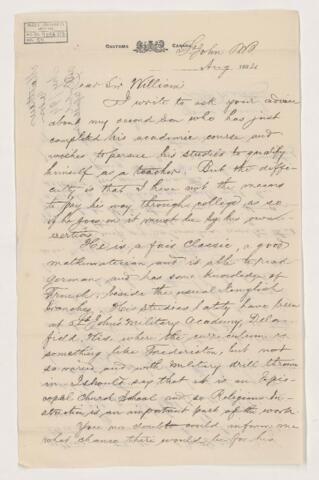 CUSTOMS CANADA
St John NB
Aug 1892
Dear Sir William
I write to ask your advice
about my second son who has just
completed his academic course and
wishes to pursue his studies to qualify
himself as a teacher. But the diffi-
culty is that I have not the means
to pay his way through college so
if he goes on it must be by his own
exertions.
He is a fair Classic, a good
mathematician and is able to read
German and has some knowledge of
French, beside the usual English
branches. His studies lately have been
at St John's Military Academy, Dela-
field Wis. where the curriculum is
something like Fredericton, but not
so varied and with military drill thrown
in. I should say that it is an Epis-
copal Church School and so Religious In-
struction is an important part of the work.
You no doubt could inform me
what chance there would be for his